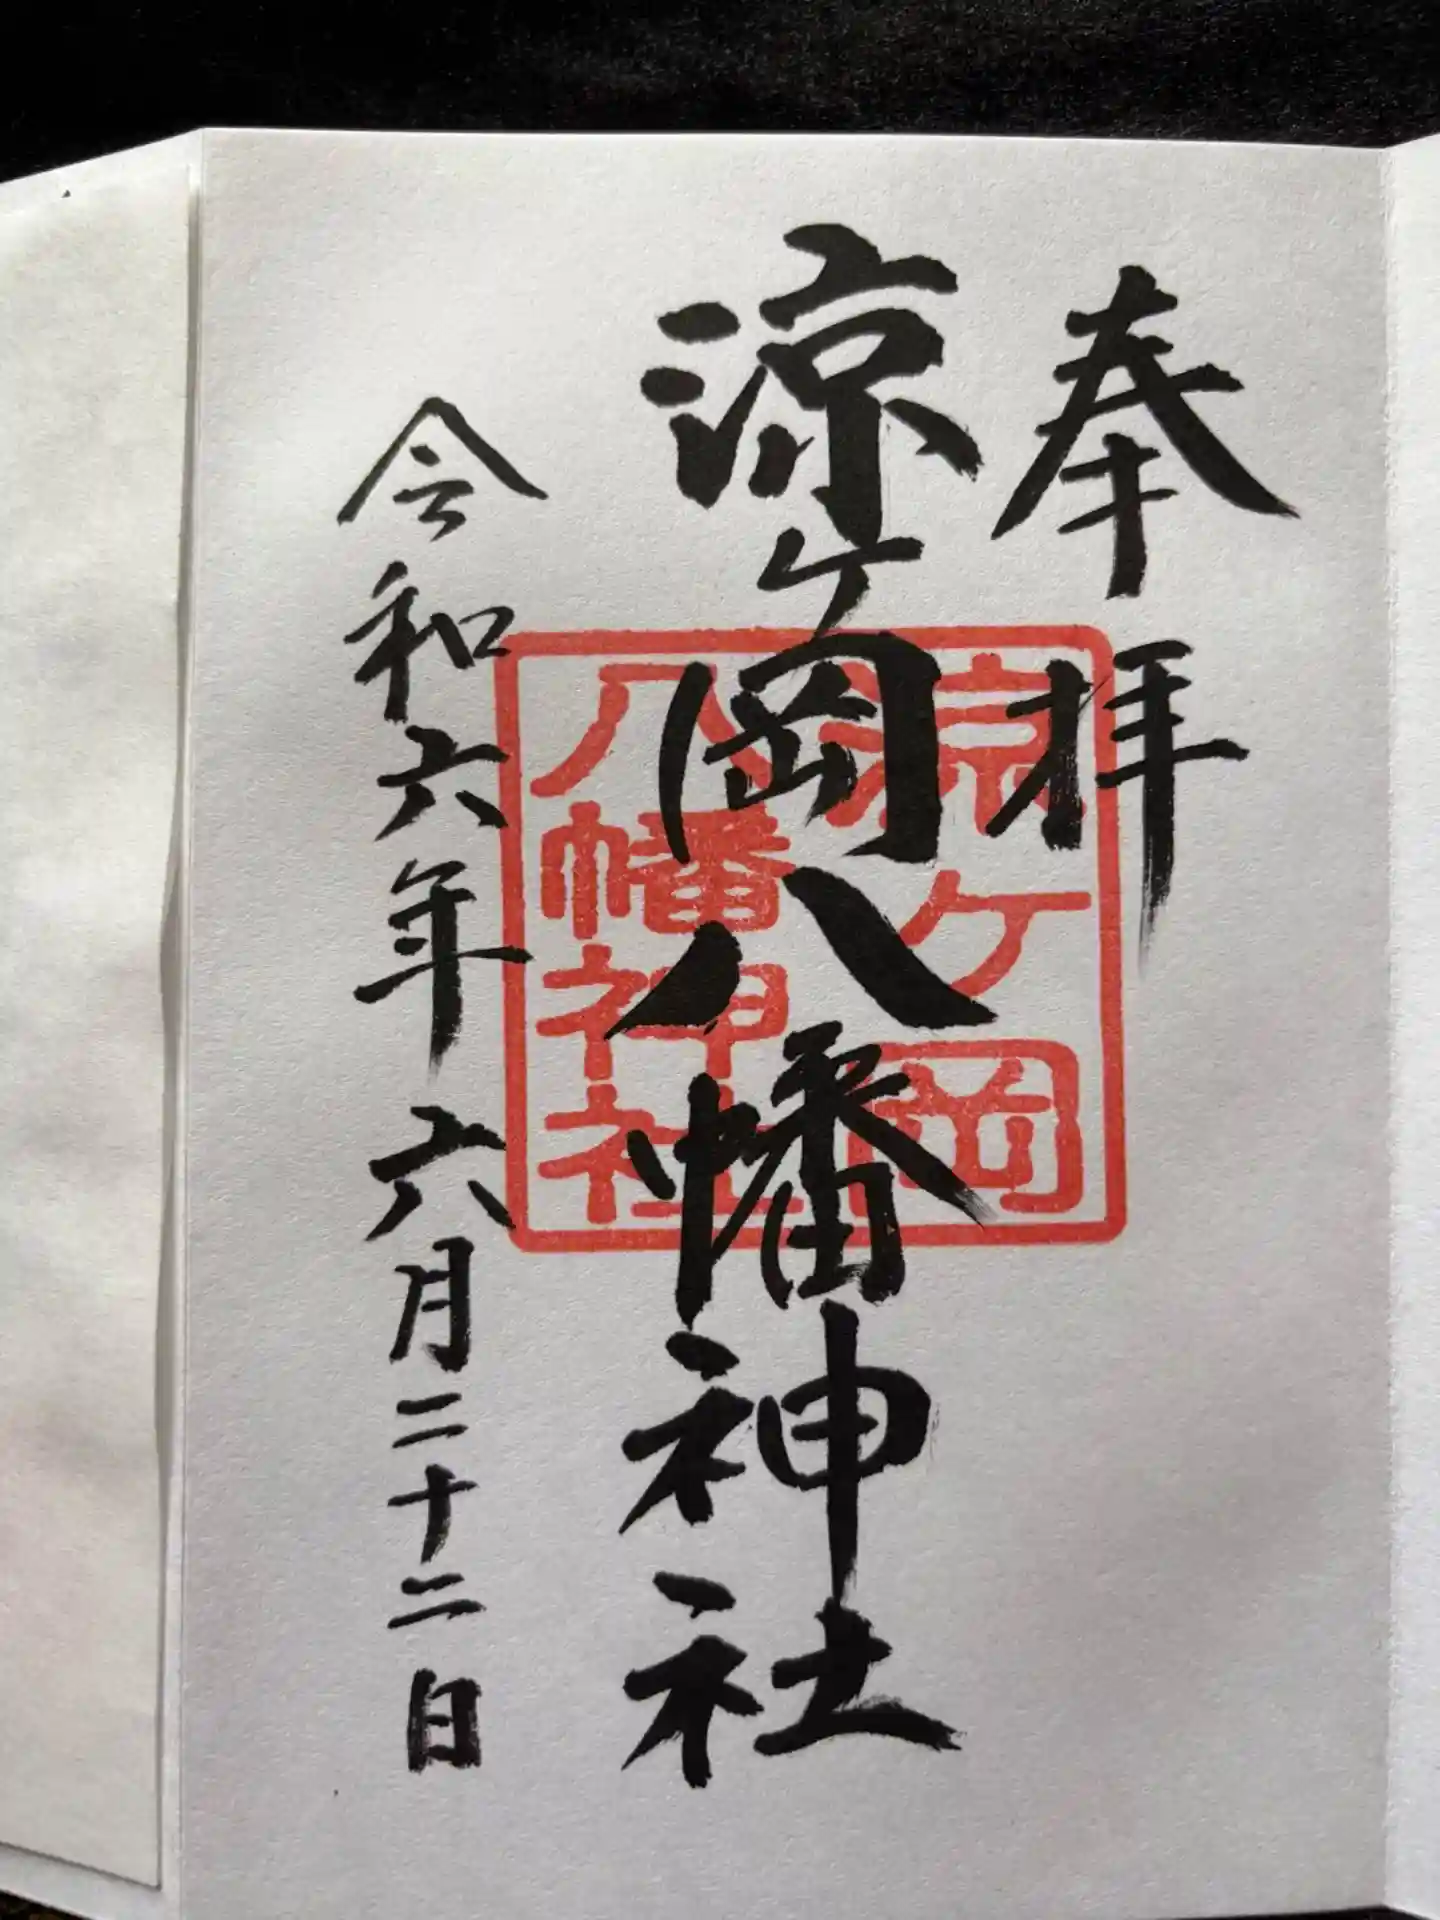 奉拝
涼ヶ岡八幡神社
涼ケ岡
八幡神社
令和六年六月二十二日